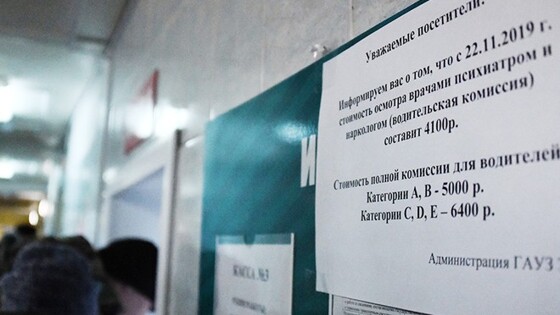 Уважаемые посетители!
Информируем вас о том, что с 22.11.2019 г.
стоимость осмотра врачами психиатром и
наркологом (водительская комиссия)
составит 4100р.
Стоимость полной комиссии для водителей
Категории А, В - 5000 р.
Категории C, D, E – 6400 р.
Администрация ГАУЗ
И
КАССА №3